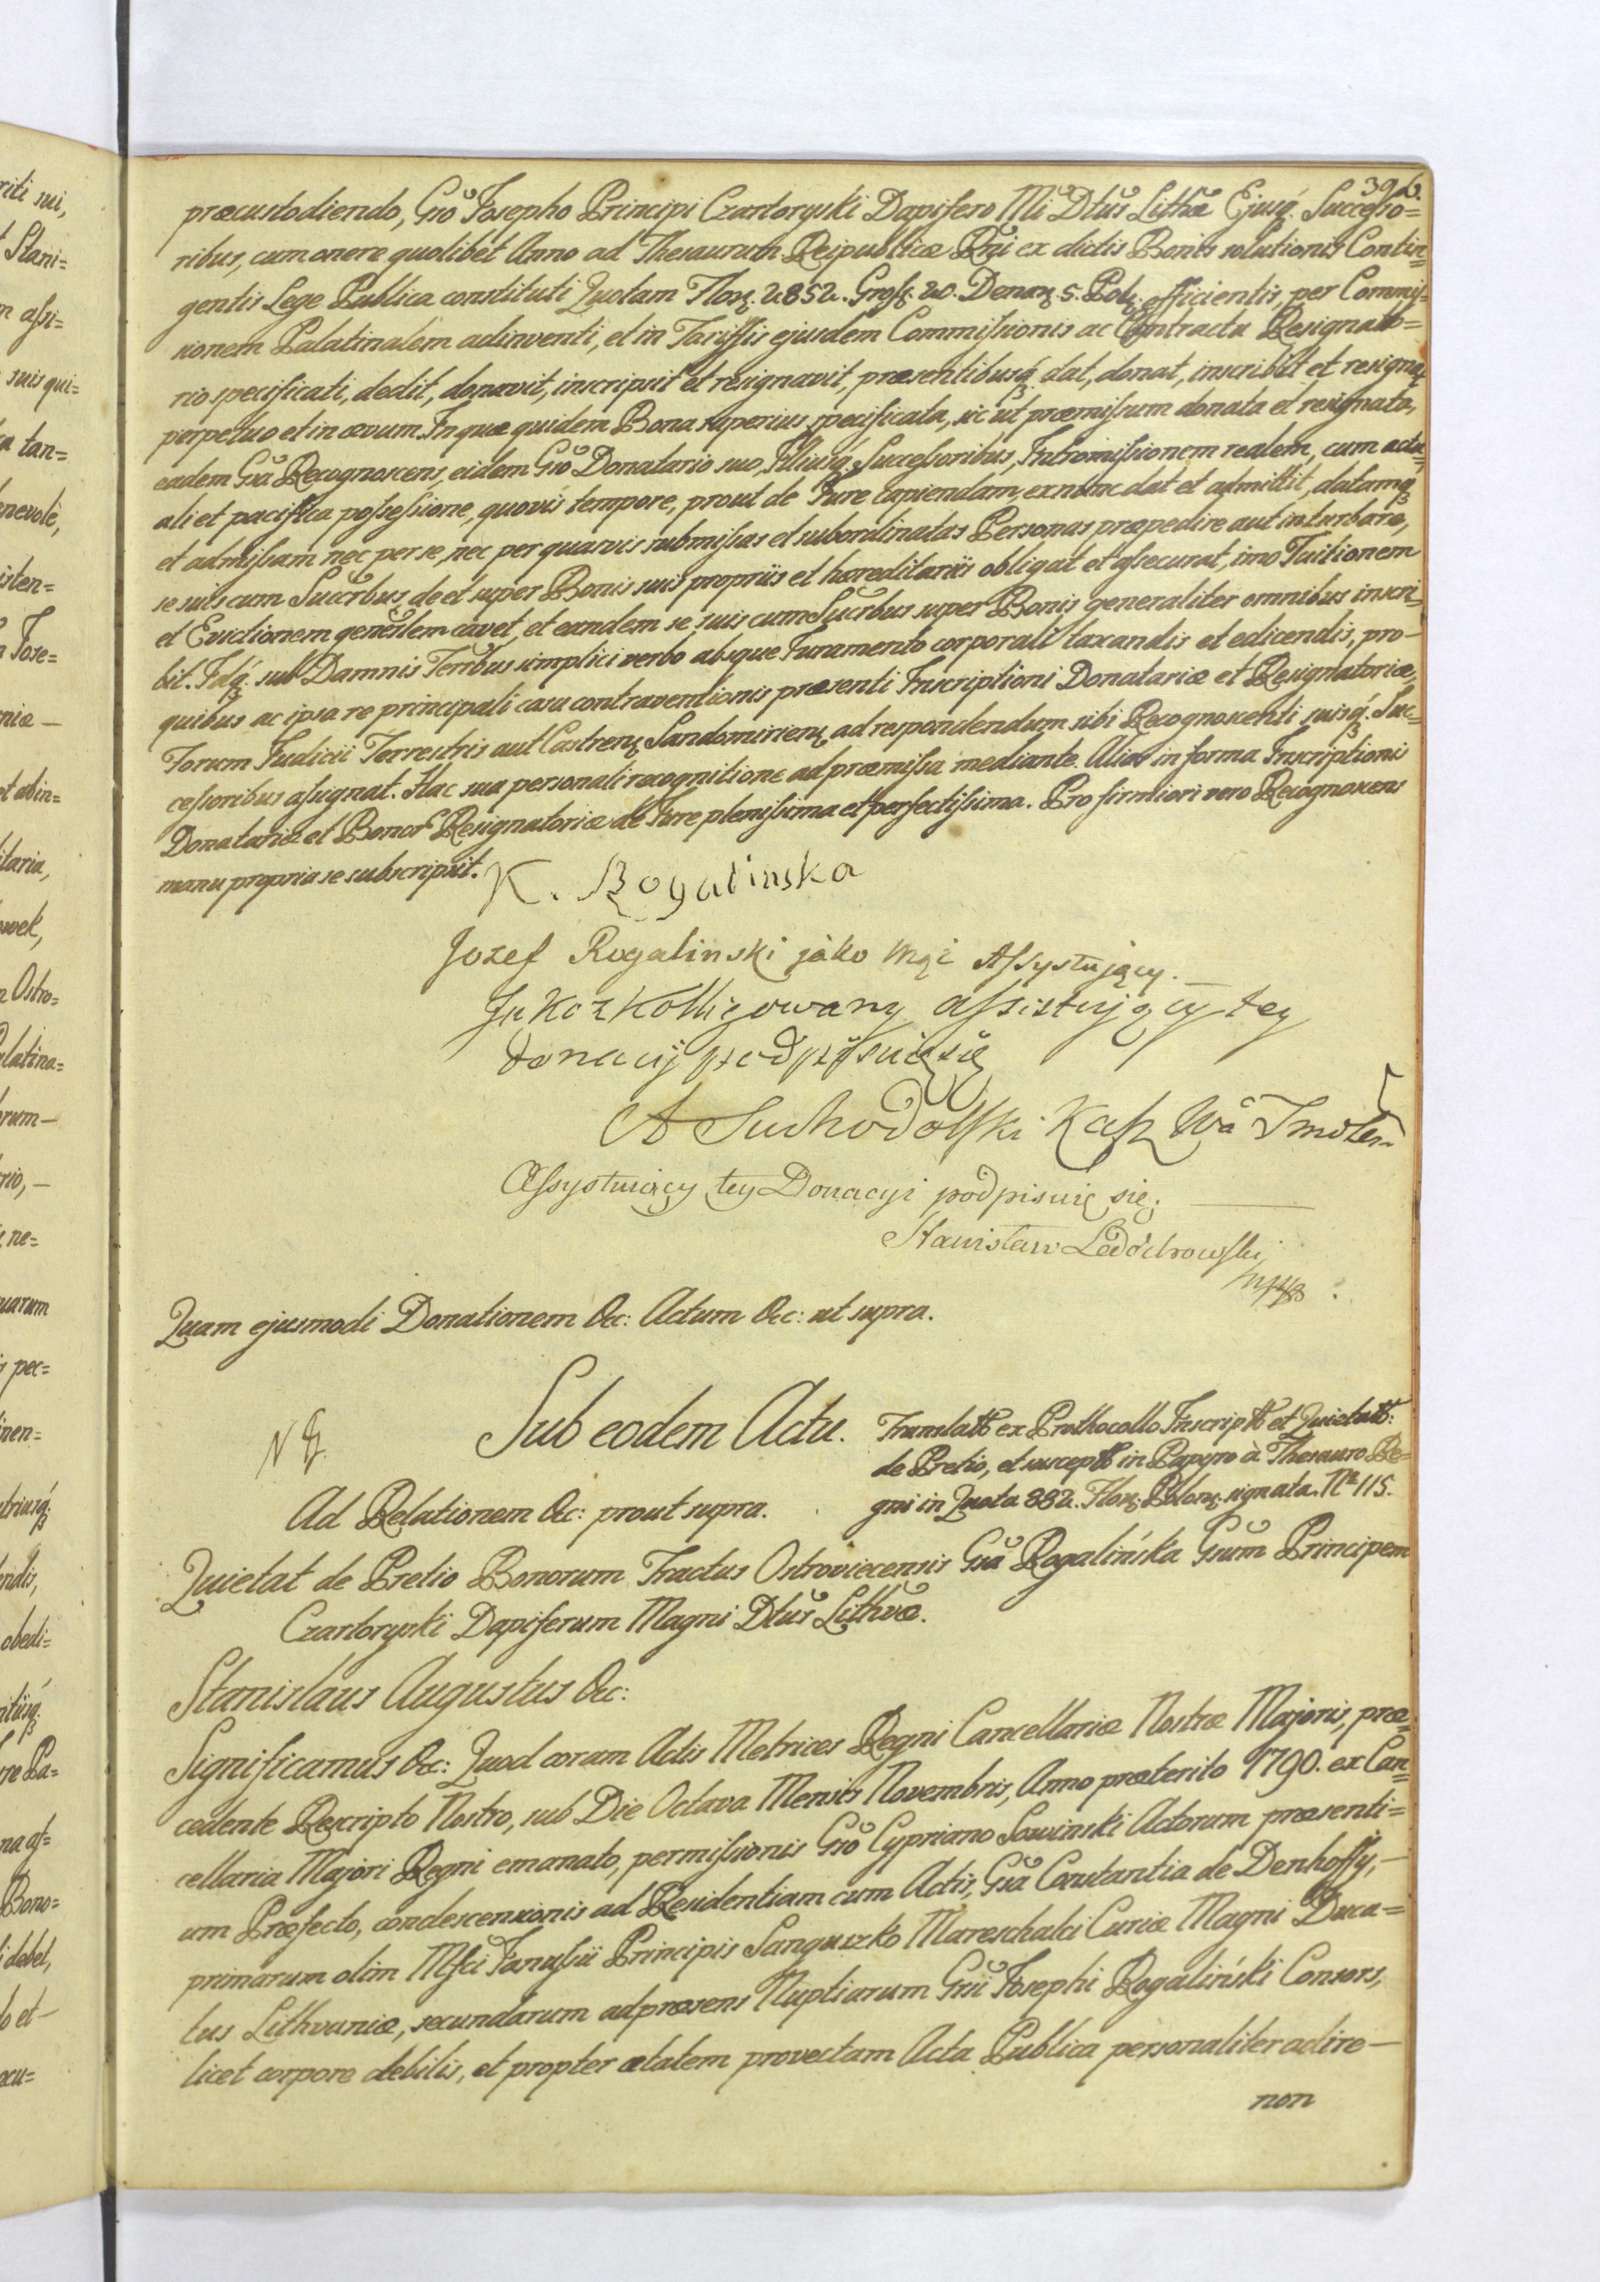 396.
præcustodiendo, Gso Josepho Principi Czartoryski Dapifero Mi Dtus Lithæ Ejusq; Successo=
ribus, cum onere quolibet Anno ad Thesaurum Reipublicæ Rni ex dictis Bonis solutionis Contin=
gentis Lege Publica constituti Quotam Flor. 2852. Gross. 20. Denar. 5. Pol. efficientis, per Commis=
sionem Palatinalem adinventi, et in Tariffis ejusdem Commissionis ac Contractu Resignato=
rio specificati, dedit, donavit, inscripsit et resignavit, præsentibusq; dat, donat, inscribit et resignat
perpetuo et in ævum. In quæ quidem Bona superius specificata, sic ut præmissum donata et resignata,
eadem Gsa Recognoscens, eidem Gso Donatario suo, Illiusq; Successoribus, Intromissionem realem, cum actu=
ali et pacifica possessione, quovis tempore, prout de Jure capiendam, exnunc dat et admittit, datamq;
et admissam nec per se, nec per quasvis submissas et subordinatas Personas præpedire aut inturbare,
se suis cum Succrbus de et super Bonis suis propriis et hæreditariis obligat et assecurat, imo Tuitionem
et Evictionem genrlem cavet, et eandem se suis cum Sucrbus super Bonis generaliter omnibus inscri=
bit. Idq; sub Damnis Terrbus simplici verbo absque Juramento corporali taxandis et edicendis, pro
quibus ac ipsa re principali casu contraventionis præsenti Inscriptioni Donatariæ et Resignatoriæ,
Forum Judicii Terrestris aut Castren. Sandomirien. ad respondendum sibi Recognoscenti suisq; Suc=
cessoribus assignat. Hac sua personali recognitione ad præmissa mediante. Alias in forma Inscriptionis
Donatariæ et Bonor Resignatoriæ de Jure plenissima et perfectissima. Pro firmiori vero Recognoscens
manu propria se subscripsit.
K. Rogalinska
Jozef Rogalinski jáko mąż Assystujący.
Jako zkolligowany assistujący tey
donacij podpisuię się
A Suchodolski Kasz Wa Smolen
Assystuiący tey Donacyi podpisuię się.
Stanisław Ledóchowski
mpp
Quam ejusmodi Donationem &c: Actum &c: ut supra.
Sub eodem Actu.
Ad Relationem &c: prout supra.
Translatt ex Prothocollo Inscriptt et Quietatt:
de Pretio, et susceptt in Papyro à Thesauro Re=
gni in Quota 882. Flor. Polon. signata. No 115.
Quietat de Pretio Bonorum Tractus Ostroviecensis Gsa Rogalińska Gsum Principem
Czartoryski Dapiferum Magni Dtus Lithvæ.
Stanislaus Augustus &c:
Significamus &c: Quod coram Actis Metrices Regni Cancellariæ Nostræ Majoris, præ=
cedente Rescripto Nostro, sub Die Octava Mensis Novembris, Anno præterito 1790. ex Can=
cellaria Majori Regni emanato, permissionis Gso Cypriano Sowinski Actorum præsenti=
um Præfecto, condescensionis ad Residentiam cum Actis, Gsa Constantia de Denhoffy,
primarum olim Mfci Janussii Principis Sanguszko Mareschalci Curiæ Magni Duca=
tus Lithvaniæ, secundarum ad præsens Nuptiarum Gsi Josephi Rogaliński Consors,
licet corpore debilis, et propter ætatem provectam Acta Publica personaliter adire
non